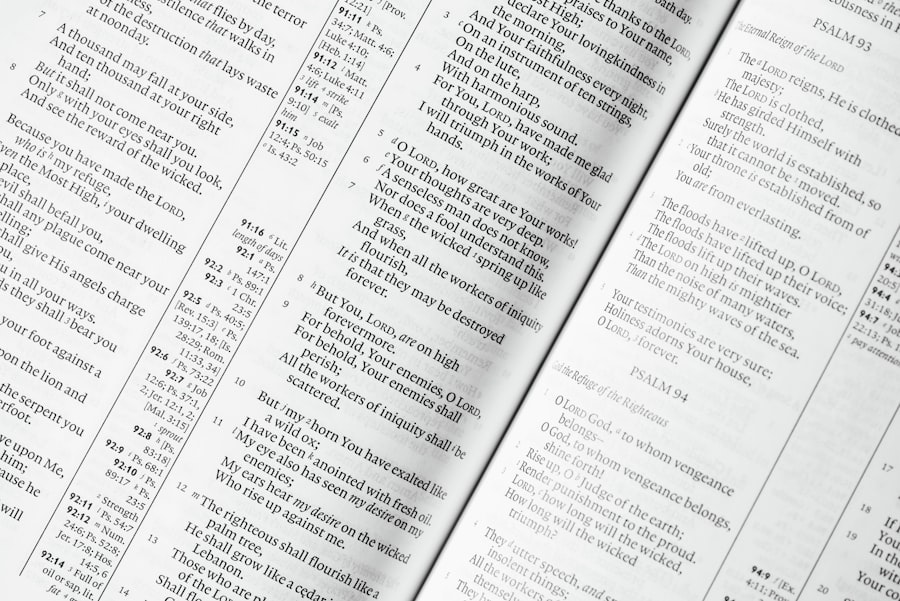 that flies by day,
pestilence that walks in
of the destruction that lays waste
at noonday.
7 A thousand may fall at your side,
And ten thousand at your right
hand;
But it shall not come near you.
8 Only g with your eyes shall you look,
And see the reward of the wicked.
Because you have made the LORD,
who is h my refuge,
Even the Most High, i your dwelling
place,
evil shall befall you,
shall any plague come near your
shall give His angels charge
you,
you in all your ways.
they shall 3 bear you
your foot against a
upon the lion and
the serpent you
ve upon Me,
him;
cause he
will
91:11 k Ps.
34:7; Matt. 4:6;
Luke 4:10;
[Heb. 1:14]
91:12 l Matt.
4:6; Luke 4:11
3 lift 4 strike
91:14 m [Ps.
9:10] 5 exalt
him
91:15 n Job
12:4; Ps. 50:15
o Is. 43:2
91:16 6 Lit.
length of days
92:1 a Ps.
147:1
92:2 b Ps. 89:1
92:3 c 1 Chr.
23:5
92:5 d Ps. 40:5;
[Rev. 15:3] e [Ps.
139:17, 18; [Is.
28:29; Rom.
11:33, 34]
92:6 f Ps. 73:22
92:7 g Job
12:6; Ps. 37:1,
2; Jer. 12:1, 2;
[Mal. 3:15]
1 sprout
92:8 h [Ps.
83:18]
92:9 i Ps. 68:1
92:10 j Ps.
89:17 k Ps.
23:5
2 Strength
92:11 l Ps. 54:7
92:12 m Num.
24:6; Ps. 52:8;
Jer. 17:8; Hos.
14:5, 6
92:14 3 Full of
oil or sap, lit.
fat
give thanks to the LORD,
praises to Your name,
Most High;
declare Your lovingkindness in
the morning,
And Your faithfulness every night,
3 c On an instrument of ten strings,
On the lute,
And on the harp,
With harmonious sound.
4 For You, LORD, have made me glad
through Your work;
I will triumph in the works of Your
hands.
5 d O LORD, how great are Your works!
e Your thoughts are very deep.
6 f A senseless man does not know,
Nor does a fool understand this.
7 When g the wicked 1 spring up like
grass,
And when all the workers of iniquity
flourish,
It is that they may be destroyed
forever.
8 h But You, LORD, are on high
forevermore.
9 For behold, Your enemies, O LORD,
For behold, Your enemies shall
perish;
All the workers of iniquity shall i be
scattered.
10 But j my 2 horn You have exalted like
a wild ox;
I have been k anointed with fresh oil.
11 l My eye also has seen my desire on my
enemies;
My ears hear my desire on the wicked
Who rise up against me.
12 m The righteous shall flourish like a
palm tree,
He shall grow like a cedar in
Lebanon.
13 Those who are
of the LORD
Shall flourish
14
PSALM 93
The Eternal Reign of the LORD
The LORD reigns, He is clothed
majesty;
The LORD is clothed,
He has girded Himself with
strength.
Surely the world is established, so
that it cannot be moved.
Your throne is established from of
old;
You are from everlasting.
The floods have lifted up, O LORD,
The floods have lifted up their voice;
The floods lift up their waves.
The LORD on high is mightier
Than the noise of many waters,
Than the mighty waves of the sea.
Your testimonies are very sure;
Holiness adorns Your house,
O LORD, forever.
PSALM 94
God the Refuge of the Righteous
O LORD God, a to whom vengeance
belongs—
O God, to whom vengeance belongs,
shine forth!
Rise up, O Judge of the earth;
Render punishment to the proud.
LORD, how long will the wicked,
How long will the wicked
triumph?
They utter speech, and
insolent things;
All the workers
themselves
They
94:7 Job
22:13; Ps.
pay attention
94:9 f [Ex.
4:11; Prov.
17
18 If I
You
19 In the
with
20 Your co